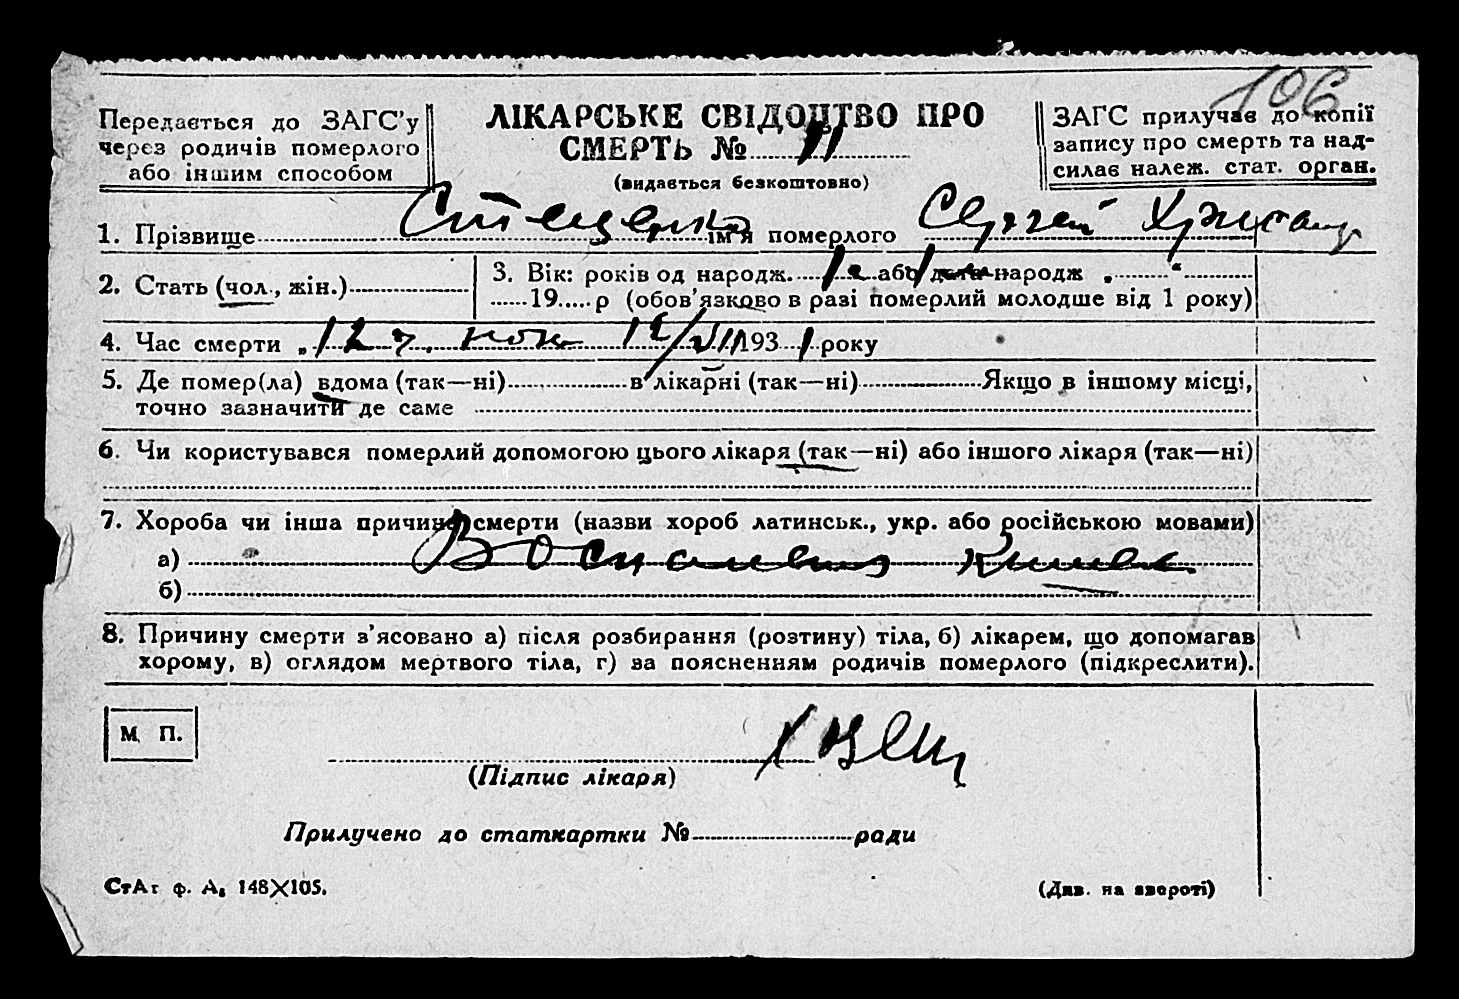 106
Передається до ЗАГС'у
через родичів померлого
або іншим способом
ЛІКАРСЬКЕ СВІДОЦТВО ПРО
СМЕРТЬ № 11
(видається безкоштовно)
ЗАГС прилучає до копії
запису про смерть та над-
силає належ. стат. орган.
1. Прізвище Стеценко ім'я померлого Сергей
2. Стать (чол., жін.)
3. Вік: років од народж. або дата народж „ “
19 р (обов'язково в разі померлий молодше від 1 року)
4. Час смерти „ 12 ч. ночи 193 1 року
5. Де помер(ла) вдома (так—ні) в лікарні (так—ні) Якщо в іншому місці,
точно зазначити де саме
6. Чи користувався померлий допомогою цього лікаря (так—ні) або іншого лікаря (так—ні)
7. Хороба чи інша причина смерти (назви хороб латинськ., укр. або російською мовами)
а) Воспаление Кишек
б)
8. Причину смерти з'ясовано а) після розбирання (розтину) тіла, б) лікарем, що допомагав
хорому, в) оглядом мертвого тіла, г) за поясненням родичів померлого (підкреслити).
М. П.
(Підпис лікаря)
Прилучено до статкартки № ради
СтАт ф. А₆ 148×105.
(Див. на звороті)